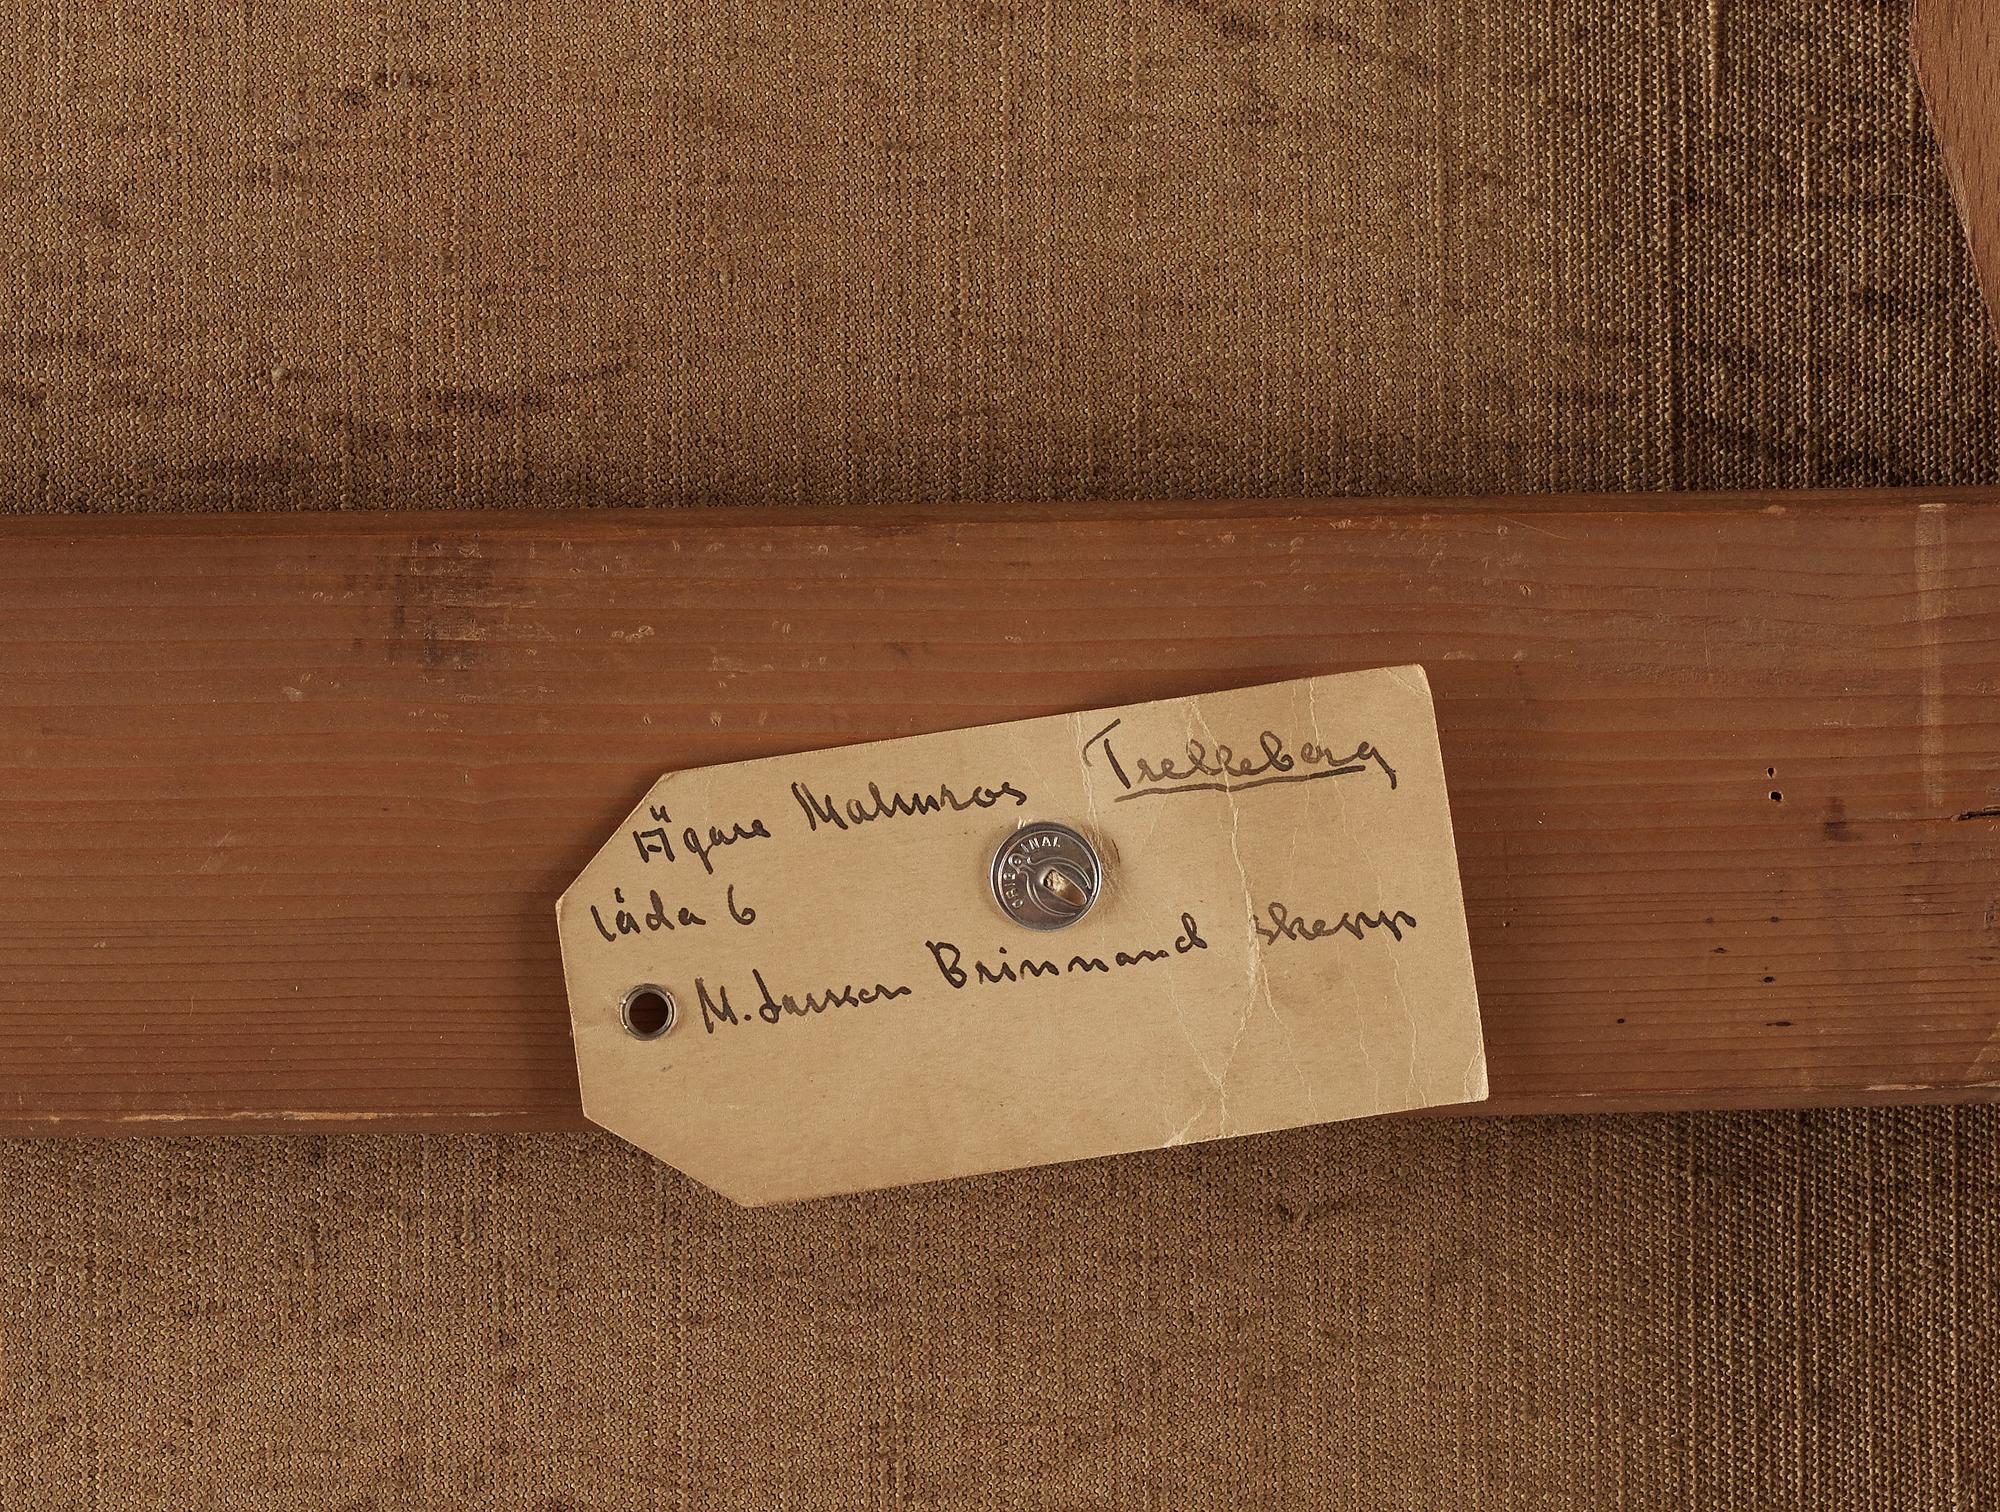 Ägare Malmros Trelleborg
låda 6
ORIGINAL
M. Larsson Brinnand skepp